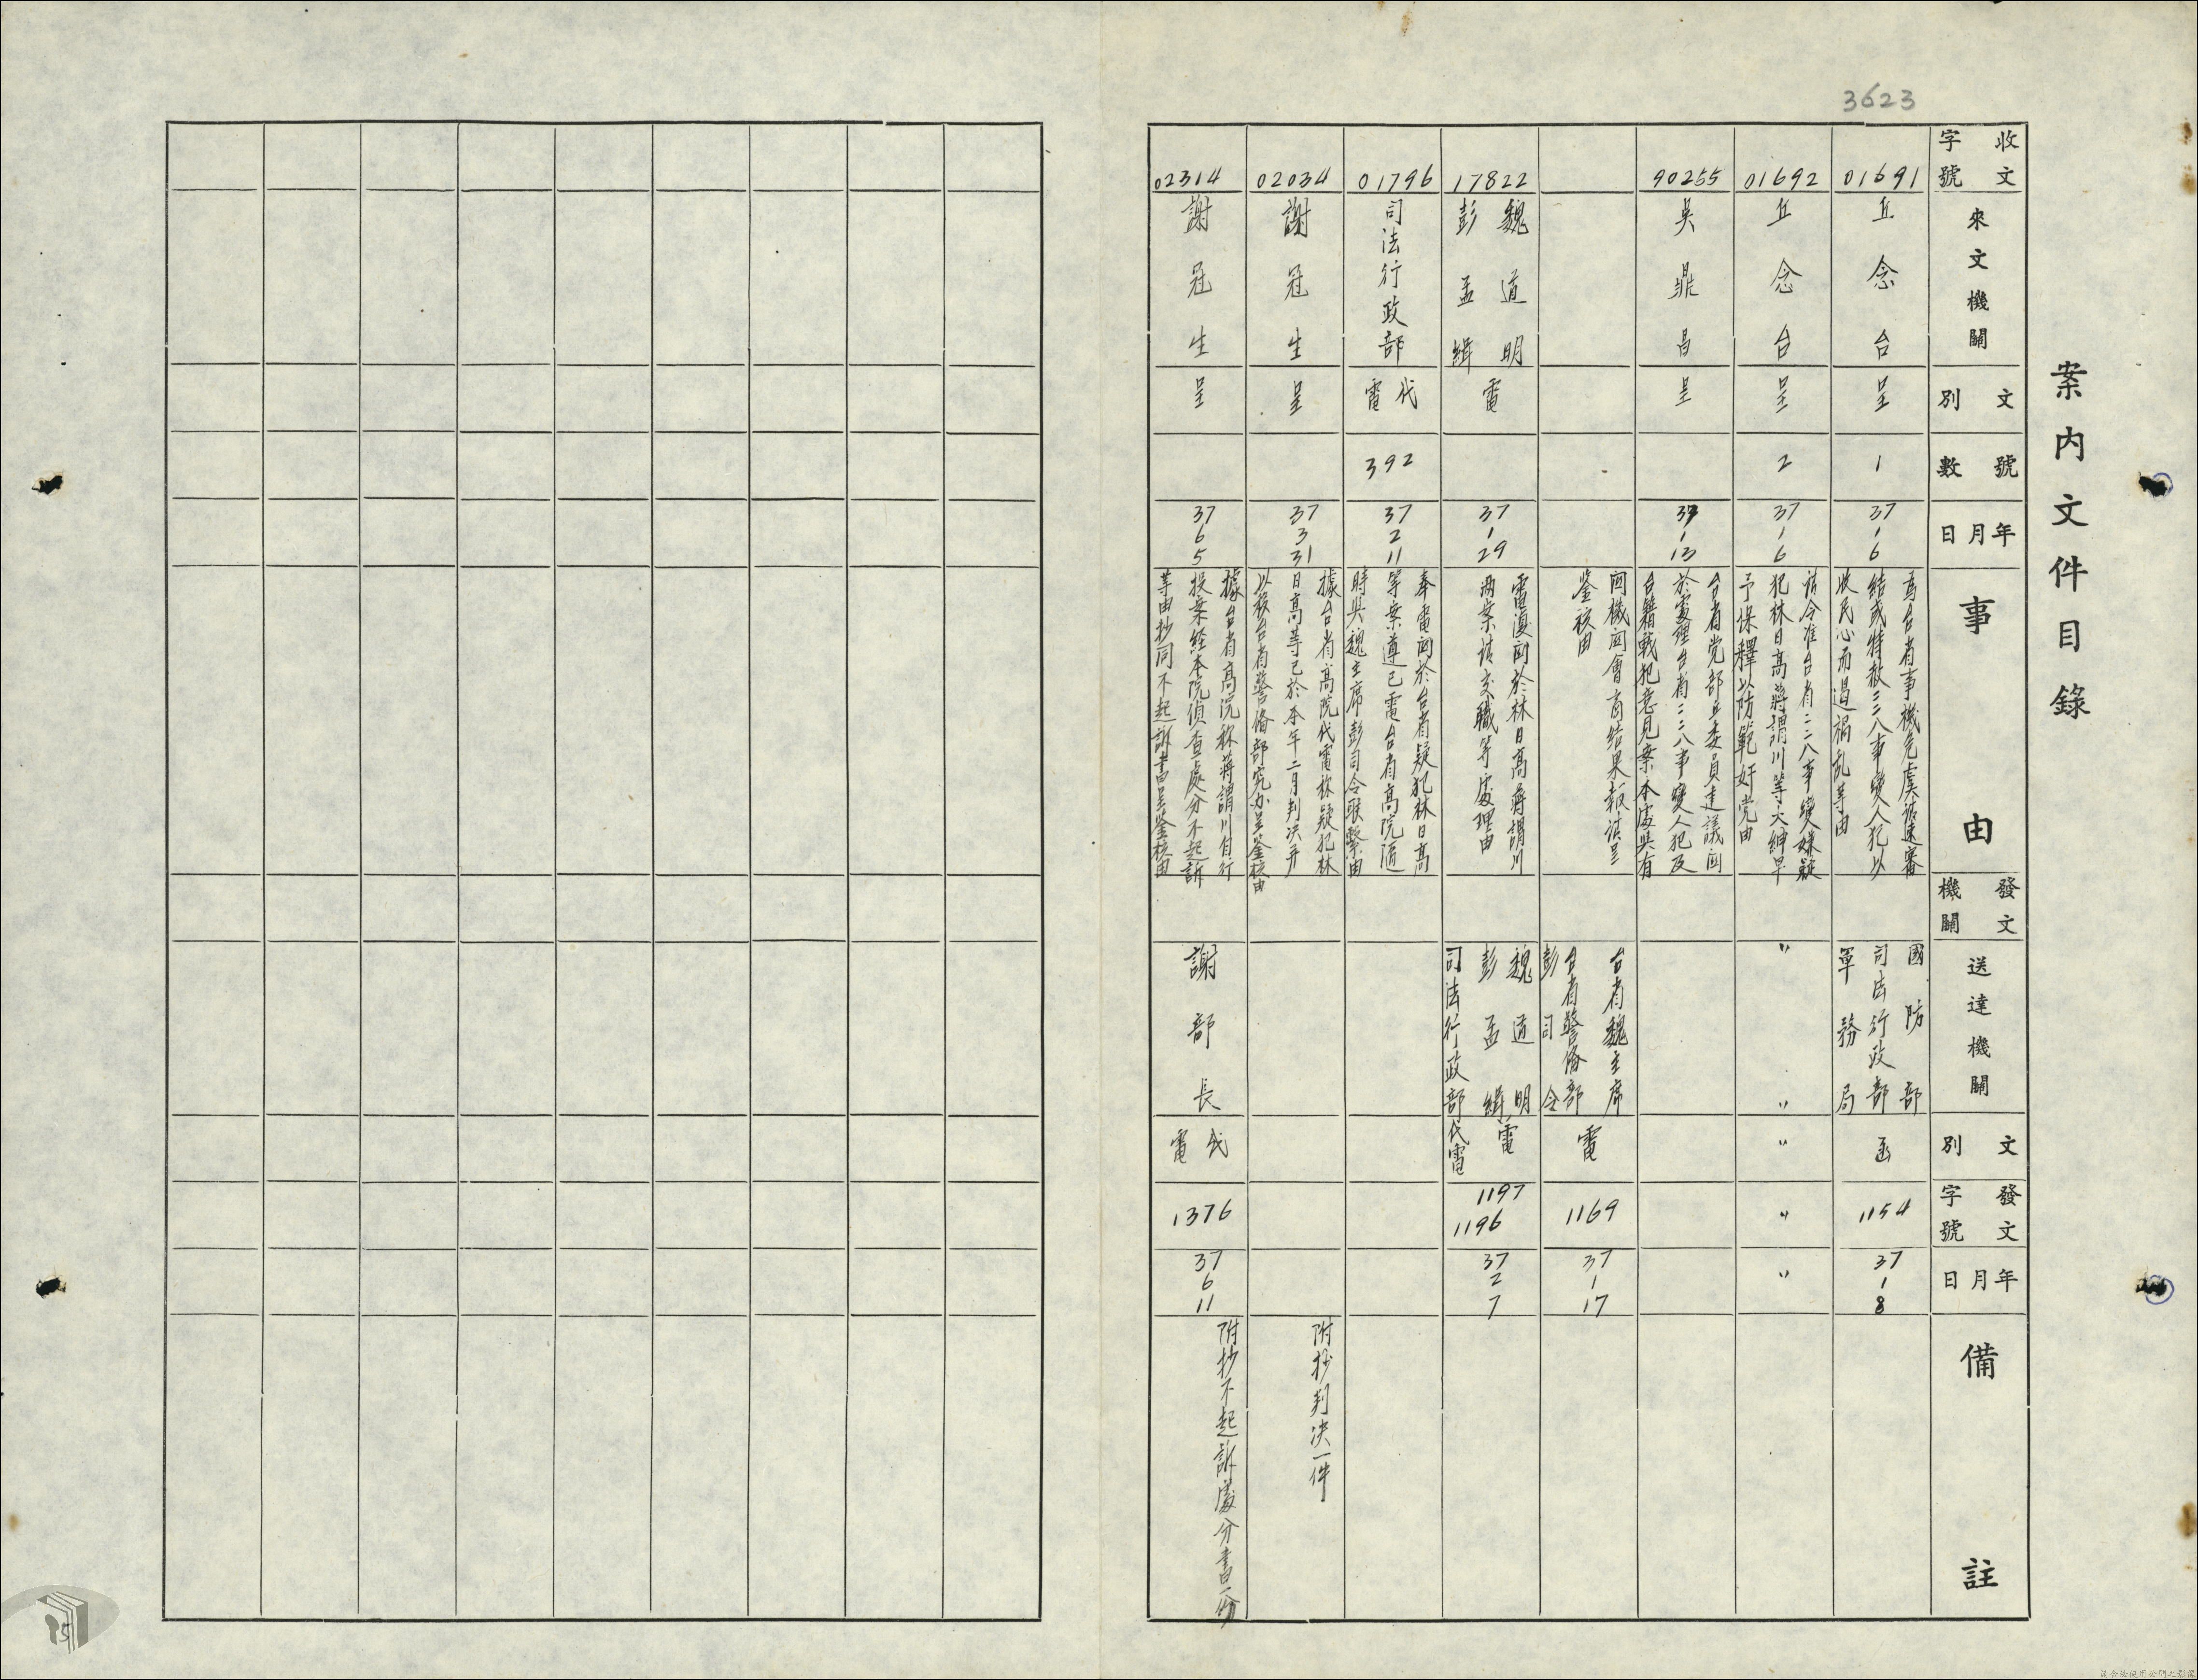 3623
案內文件目錄
收文字號
來文機關
文別
號數
年月日
事由
發文機關
送達機關
文別
發文字號
年月日
備註
01691
丘念台
呈
1
37 1 6
為台省事機危虞請速審
結或特赦二二八事變人犯以
收民心而遏禍乱等由
國防部
司法行政部
軍務局
函
1154
37 1 8
01692
丘念台
呈
2
37 1 6
請令准台省二二八事變嫌疑
犯林日高蔣謂川等大紳早
予保釋以防範奸党由
〃 〃
〃
〃
〃
90255
吳鼎昌
呈
37 1 13
台省党部丘委員建議関
於處理台省二二八事變人犯及
台籍戰犯意見案本處與有
関機関會商結果報請呈
鉴核由
台省魏主席
台省警俻部
彭司令
電
1169
37 1 17
17822
魏道明
彭孟緝
電
37 1 29
電復関於林日高蔣謂川
両案請交職等處理由
魏道明
彭孟緝
司法行政部
電
代電
1197
1196
37 2 7
01796
司法行政部
代電
392
37 2 11
奉電関於台省疑犯林日高
等案遵已電台省高院隨
時與魏主席彭司令联繫由
02034
謝冠生
呈
37 3 31
據台省高院代電称疑犯林
日高等已於本年二月判决并
以移台省警俻部究办呈鉴核由
附抄判决一件
02314
謝冠生
呈
37 6 5
據台省高院称蔣謂川自行
投案経本院偵查處分不起訴
等由抄同不起訴書呈鉴核由
謝部長
代電
1376
37 6 11
附抄不起訴處分書一份
15
請合法使用公開之影像